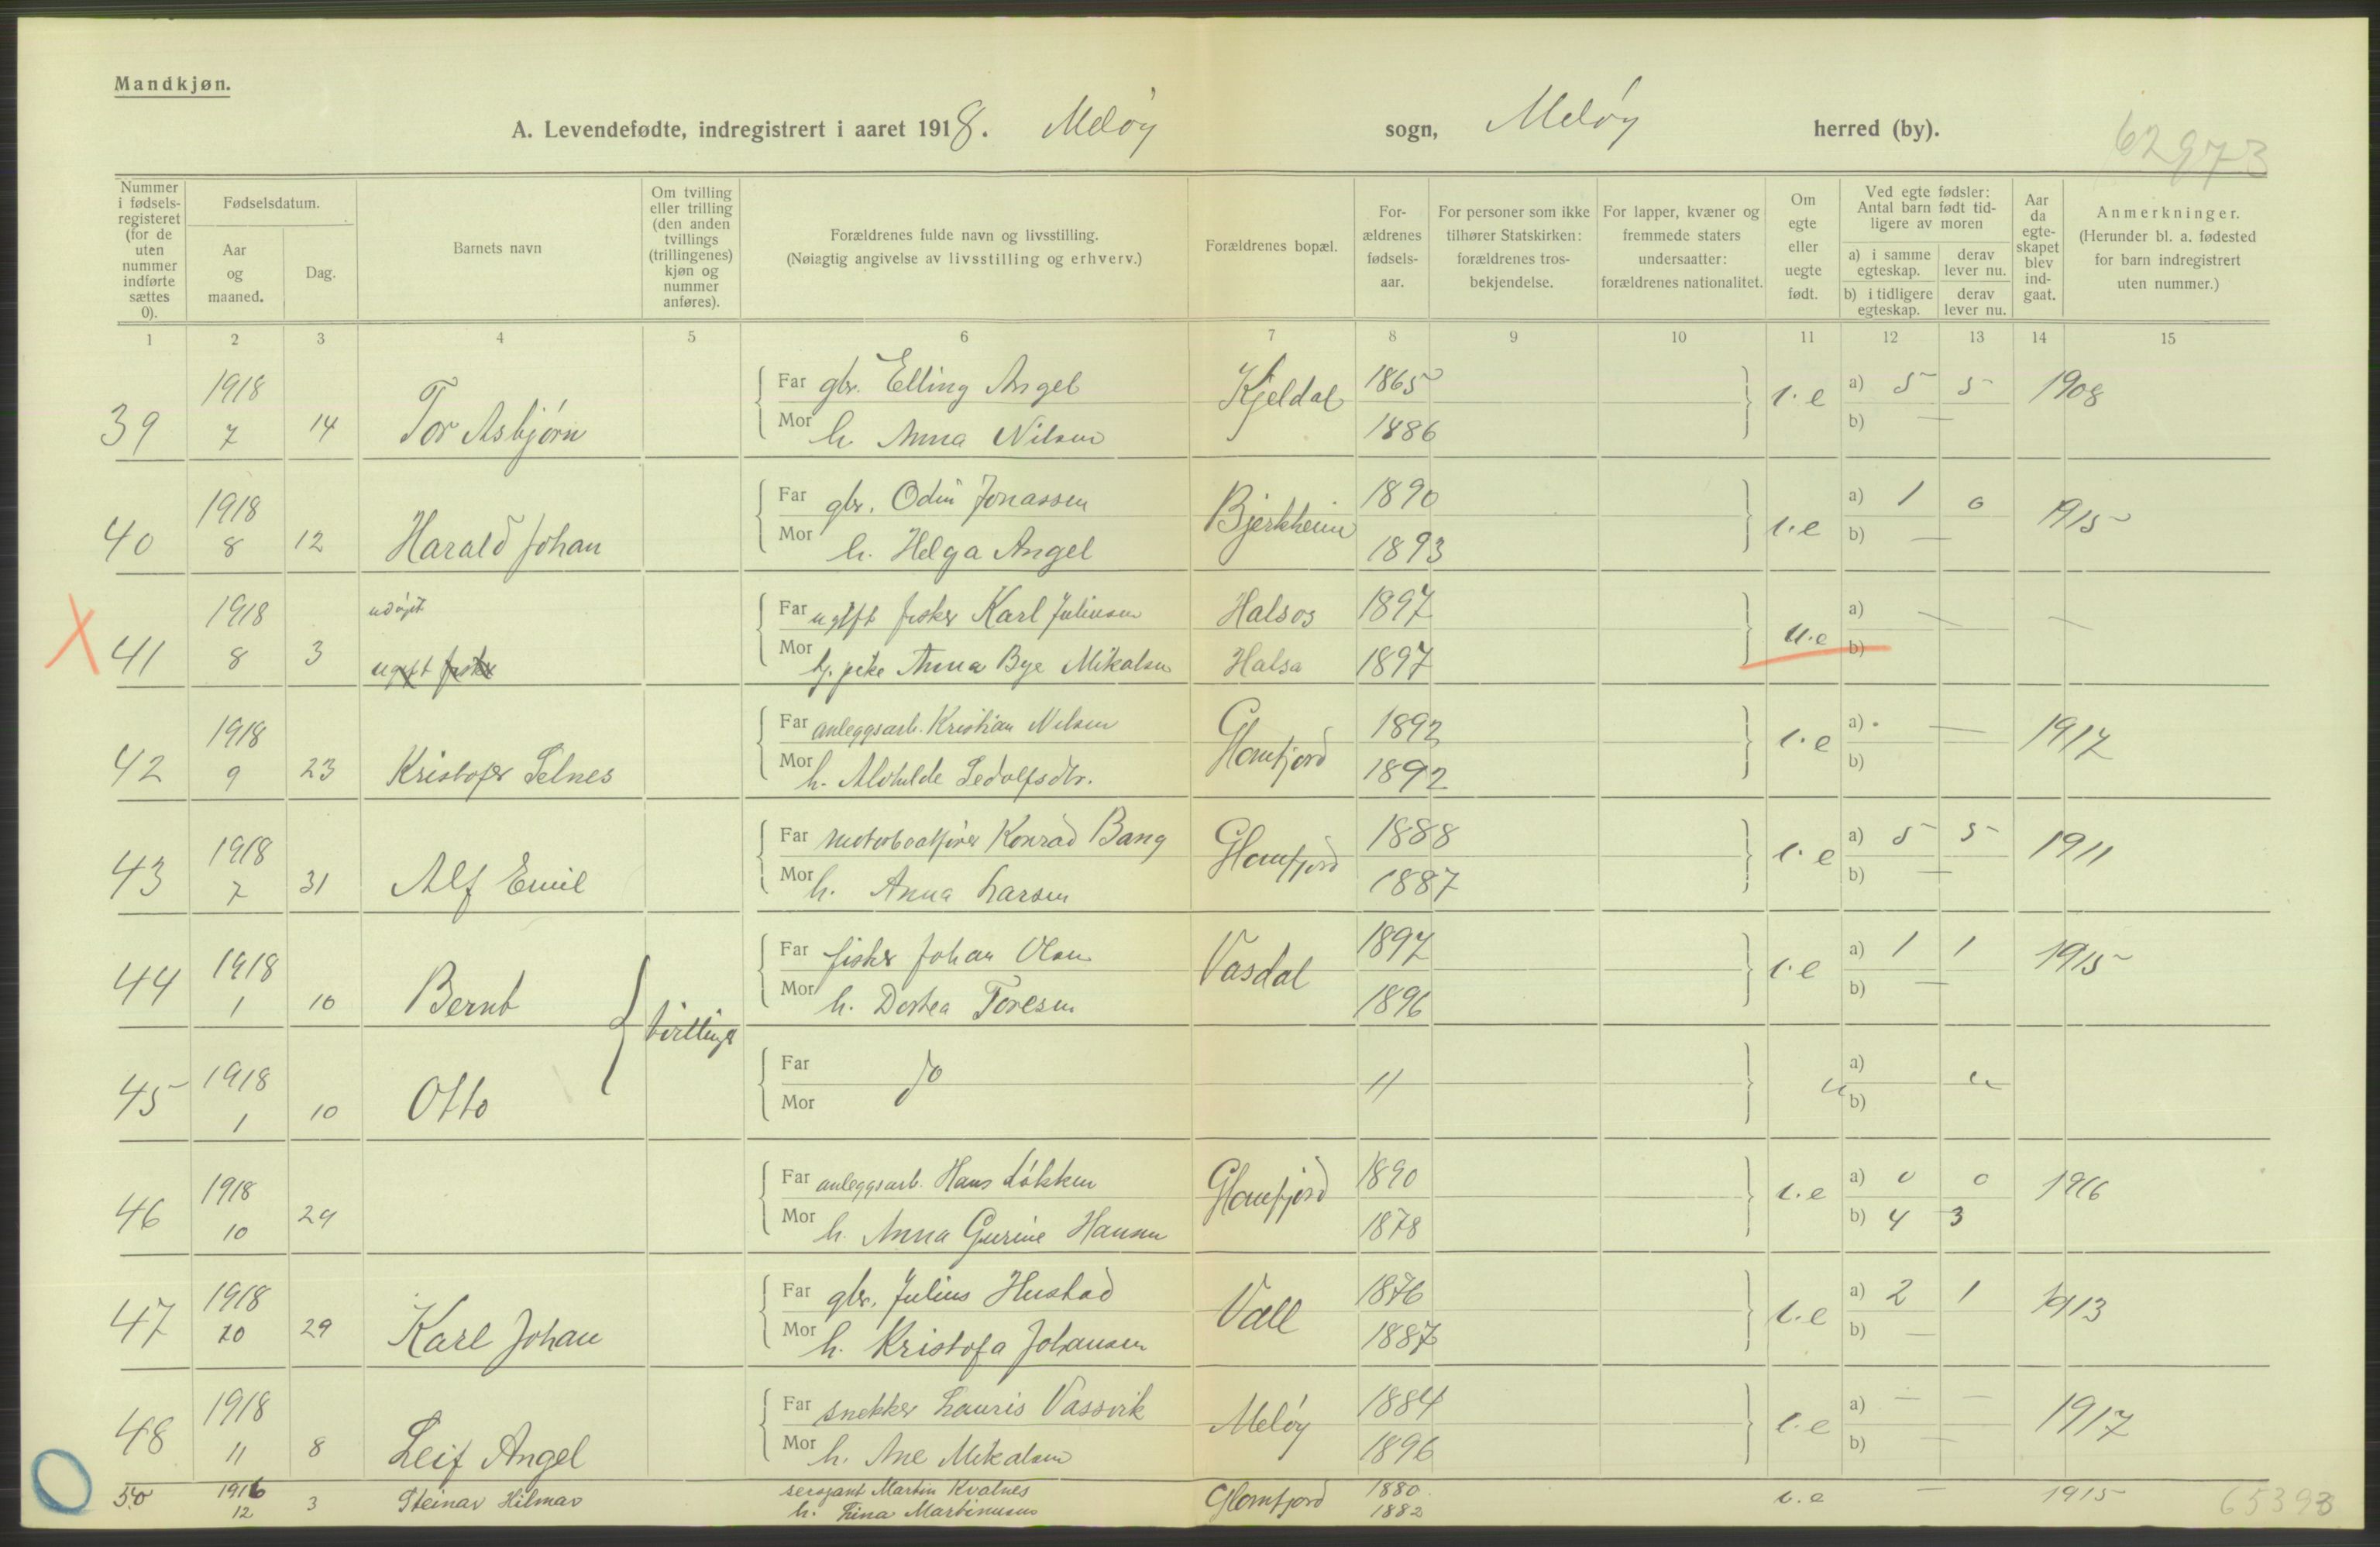 Mandkjøn.
A. Levendefødte, indregistrert i aaret 1918. Meløy sogn, Meløy herred (by).
62973
Nummer i fødselsregisteret (for de uten nummer indførte sættes 0).
Fødselsdatum.
Aar og maaned.
Dag.
Barnets navn
Om tvilling eller trilling (den anden tvillings (trillingenes) kjøn og nummer anføres).
Forældrenes fulde navn og livsstilling.
(Nøiagtig angivelse av livsstilling og erhverv.)
Forældrenes bopæl.
Forældrenes fødselsaar.
For personer som ikke tilhører Statskirken: forældrenes trosbekjendelse.
For lapper, kvæner og fremmede staters undersaatter: forældrenes nationalitet.
Om egte eller uegte født.
Ved egte fødsler: Antal barn født tidligere av moren
a) i samme egteskap.
derav lever nu.
b) i tidligere egteskap.
derav lever nu.
Aar da egteskapet blev indgaat.
Anmerkninger.
(Herunder bl. a. fødested for barn indregistrert uten nummer.)
1 2 3 4 5 6 7 8 9 10 11 12 13 14 15
39 1918 7 14 Tor Asbjørn
Far gbr. Elling Angel Kjeldal 1865 e.e a) 5 5 1908
Mor h. Anna Nilsen 1886 b) —
40 1918 8 12 Harald Johan
Far gbr. Odin Jonassen Bjerkheim 1890 e.e a) 1 0 1915
Mor h. Helga Angel 1893 b) —
X 41 1918 8 3 udøpt
ugift fisker
Far ugift fisker Karl Juliussen Halsos 1897 u.e a) — —
Mor tj. pike Anna Bye Mikalsen Halsa 1897 b)
42 1918 9 23 Kristofer Selnes
Far anleggsarb. Kristian Nilsen Glomfjord 1892 e.e a) — 1917
Mor h. Alvhilde Sedolfsdtr. 1892 b)
43 1918 7 31 Alf Emil
Far motorbaatfører Konrad Bang Glomfjord 1888 e.e a) 5 5 1911
Mor h. Anna Larsen 1887 b) —
44 1918 1 10 Bernt
tvillinger
Far fisker Johan Olsen Vasdal 1897 e.e a) 1 1 1915
Mor h. Dortea Toresen 1896 b) —
45 1918 1 10 Otto
Far do 〃 〃 a) 〃
Mor b)
46 1918 10 29
Far anleggsarb. Hans Løkken Glomfjord 1890 e.e a) 0 0 1916
Mor h. Anna Gurine Hansen 1878 b) 4 3
47 1918 10 29 Karl Johan
Far gbr. Julius Hustad Vall 1876 e.e a) 2 1 1913
Mor h. Kristofa Johansen 1887 b) —
48 1918 11 8 Leif Angel
Far snekker Lauris Vassvik Meløy 1884 e.e a) — — 1917
Mor h. Ane Mikalsen 1896 b) —
50 1916 12 3 Steinar Hilmar
sersjant Martin Kvalnes Glomfjord 1880 e.e — 1915
h. Lina Martinusen 1882
65393